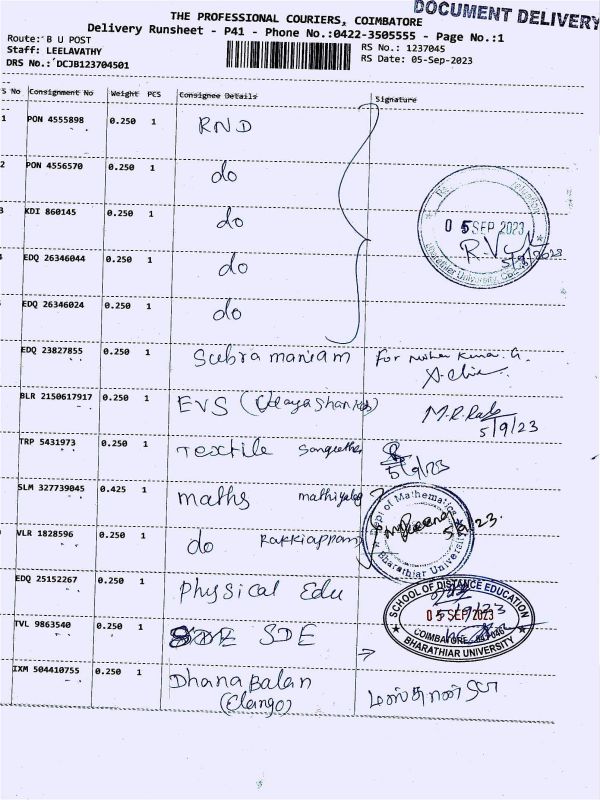 DOCUMENT DELIVERY
THE PROFESSIONAL COURIERS, COIMBATORE
Delivery Runsheet - P41 - Phone No.:0422-3505555 - Page No.:1
Route:B U POST
Staff: LEELAVATHY
DRS No.: DCJB123704501
RS No.: 1237045
RS Date: 05-Sep-2023
S No Consignment No Weight PCS Consignee Details Signature
1 PON 4555898 0.250 1 RND
2 PON 4556570 0.250 1 do
3 KDI 860145 0.250 1 do
EDQ 26346044 0.250 1 do
EDQ 26346024 0.250 1 do
05 SEP 2023
Bharathiar University
EDQ 23827855 0.250 1 Subramaniam For
BLR 2150617917 0.250 1 EVS 5/9/23
TRP 5431973 0.250 1 Textile 5/9/23
SLM 327739045 0.425 1 maths
VLR 1828596 0.250 1 do Rakkiappan
Dept of Mathematics
Bharathiar University
EDQ 25152267 0.250 1 Physical Edu
TVL 9863540 0.250 1 SDE
SCHOOL OF DISTANCE EDUCATION
05 SEP 2023
COIMBATORE - 641 046
BHARATHIAR UNIVERSITY
IXM 504410755 0.250 1 DhanaBalan
(Elango)